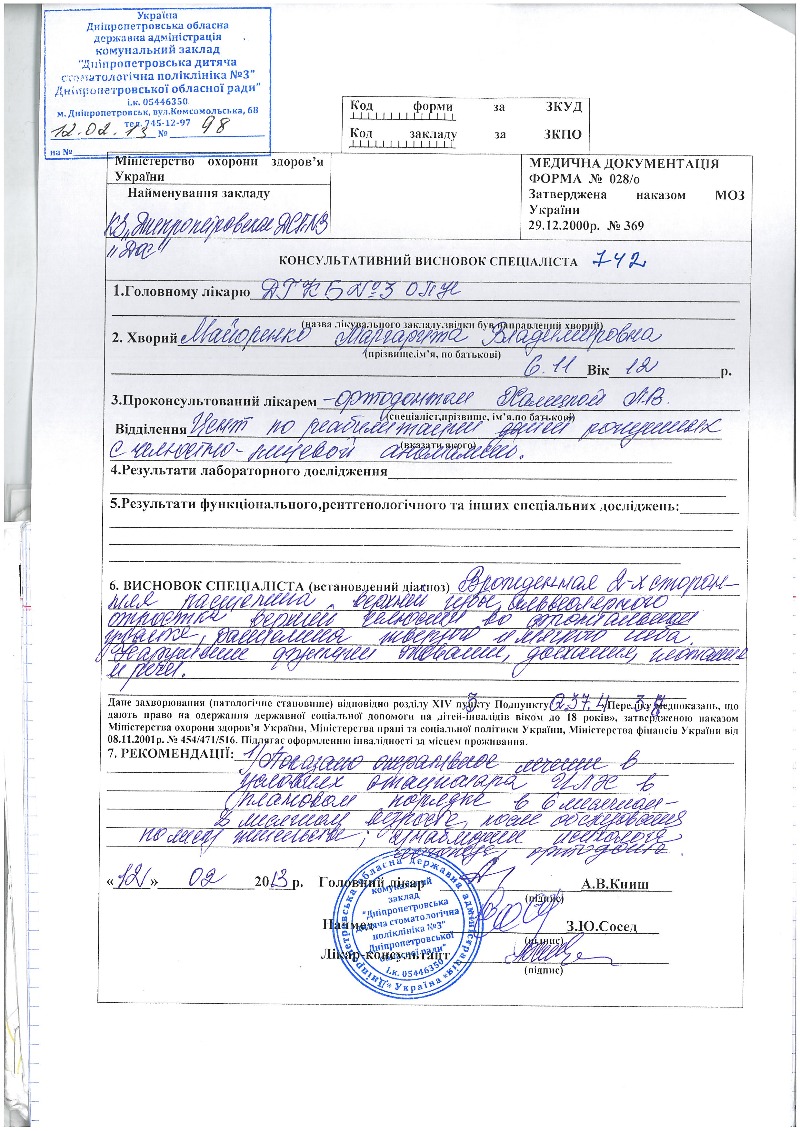 Україна
Дніпропетровська обласна
державна адміністрація
комунальний заклад
"Дніпропетровська дитяча
стоматологічна поліклініка №3"
Дніпропетровської обласної ради"
і.к. 05446350
м. Дніпропетровськ, вул.Комсомольська, 68
тел. 745-12-97
12.02.13 № 98
на №
Код форми за ЗКУД
Код закладу за ЗКПО
Міністерство охорони здоров’я
України
Найменування закладу
МЕДИЧНА ДОКУМЕНТАЦІЯ
ФОРМА № 028/о
Затверджена наказом МОЗ
України
29.12.2000р. № 369
КОНСУЛЬТАТИВНИЙ ВИСНОВОК СПЕЦІАЛІСТА 742
1.Головному лікарю ДГКБ №3 ОПН
(назва лікувального закладу,звідки був направлений хворий)
2. Хворий Майоренко Маргарита Владимировна
(прізвище,ім’я, по батькові)
6.11 Вік 12 р.
3.Проконсультований лікарем - ортодонтом
(спеціаліст,прізвище, ім’я.по батькові)
Відділення Центр по реабилитации детей рожденных
(вказати якого)
с челюстно-лицевой аномалией.
4.Результати лабораторного дослідження
5.Результати функціонального,рентгенологічного та інших спеціальних досліджень:
6. ВИСНОВОК СПЕЦІАЛІСТА (встановлений діагноз) Врожденная 2-х сторон-
няя расщелина верхней губы, альвеолярного
отростка верхней челюсти во фронтальном
участке, расщелина твердого и мягкого неба.
Нарушение функции сосания, дыхания, глотания
и речи.
Дане захворювання (патологічне становище) відповідно розділу XIV пункту 3 Подпункту Q37.4 Переліку медпоказань, що
дають право на одержання державної соціальної допомоги на дітей-інвалідів віком до 18 років», затвердженою наказом
Міністерства охорони здоров’я України, Міністерства праці та соціальної політики України, Міністерства фінансів України від
08.11.2001р. № 454/471/516. Підлягає оформленню інвалідності за місцем проживання.
7. РЕКОМЕНДАЦІЇ: 1) Показано оперативное лечение в
условиях стационара ЧЛХ в
плановом порядке в 6 месячном-
возрасте, после обследования
по месту жительства;
ортодонта
«12» 02 2013 р. Головний лікар А.В.Книш
(підпис)
З.Ю.Сосед
(підпис)
Лікар-консультант
(підпис)
Дніпропетровська обласна державна адміністрація
Україна
комунальний
заклад
"Дніпропетровська
дитяча стоматологічна
поліклініка №3"
Дніпропетровської
обласної ради"
і.к. 05446350